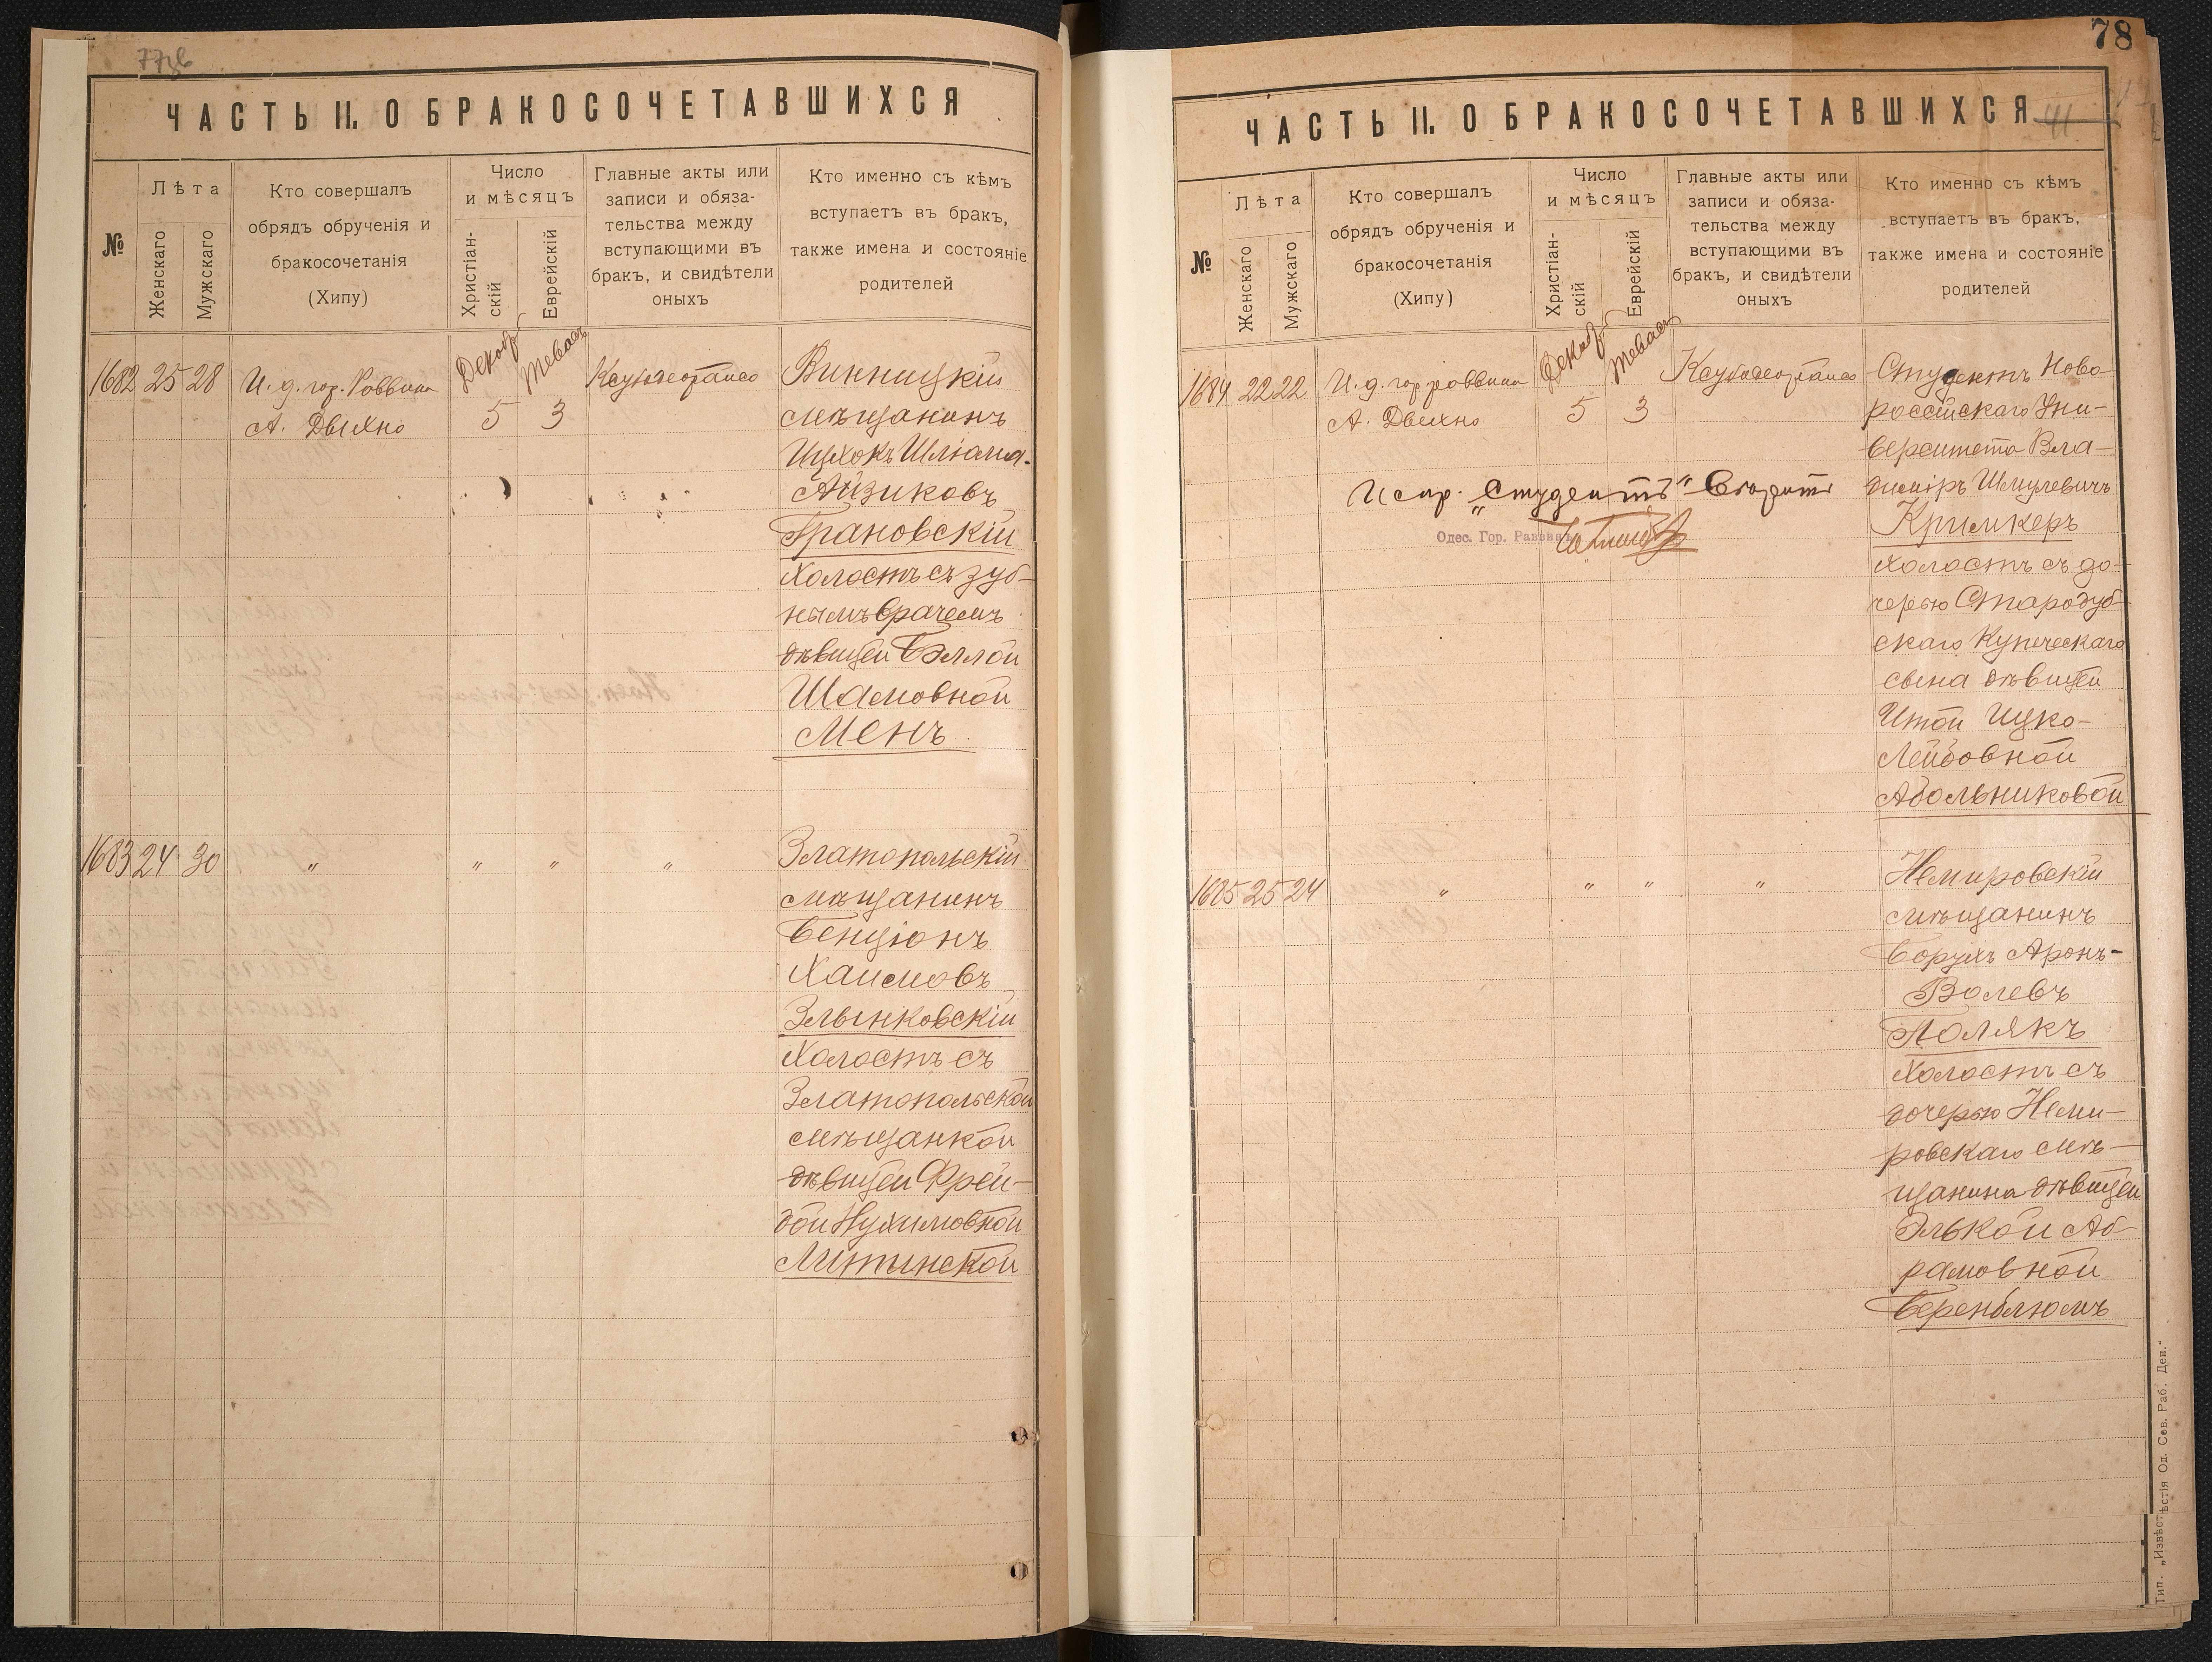 ЧАСТЬ II. О БРАКОСОЧЕТАВШИХСЯ
№
Лѣта
Женскаго
Мужскаго
Кто совершалъ
обрядъ обрученія и
бракосочетанія
(Хипу)
Число
и мѣсяцъ
Христіан-
скій
Еврейскій
Главные акты или
записи и обяза-
тельства между
вступающими въ
бракъ, и свидѣтели
оныхъ
Кто именно съ кѣмъ
вступаетъ въ бракъ,
также имена и состояніе
родителей
1682 25 28
И. д. гор. Раввина
А. Двихно
Декабр
Тевасъ
5 3
Винницкій
мѣщанинъ
Ицхокъ Шліома-
Айзиковъ
Грановскій
холостъ съ зуб-
нымъ врачемъ
дѣвицей Бэллой
Шамовной
Менъ
1683 24 30
" " " "
Златопольскій
мѣщанинъ
Бенціонъ
Хаимовъ
Злынковскій
холостъ съ
Златопольской
мѣщанкой
дѣвицей Фрей-
дой Нухимовной
Литинской
78
ЧАСТЬ II. О БРАКОСОЧЕТАВШИХСЯ
41
№
Лѣта
Женскаго
Мужскаго
Кто совершалъ
обрядъ обрученія и
бракосочетанія
(Хипу)
Число
и мѣсяцъ
Христіан-
скій
Еврейскій
Главные акты или
записи и обяза-
тельства между
вступающими въ
бракъ, и свидѣтели
оныхъ
Кто именно съ кѣмъ
вступаетъ въ бракъ,
также имена и состояніе
родителей
1684 22 22
И. д. гор. раввина
А. Двихно
Декабр
Тевасъ
5 3
Испр. "Студентъ"
Одес. Гор. Раввинъ
Студентъ Ново-
россійскаго Уни-
верситета Вла-
диміръ Шмулевичъ
Кримкеръ
холостъ съ до-
черью Стародуб-
скаго Купеческаго
сына дѣвицей
Итой Ицко-
Лейбовной
Абольниковой
1685 25 24
" " " "
Немировскій
мѣщанинъ
Борухъ Аронъ-
Волевъ
Полякъ
холостъ съ
дочерью Неми-
ровскаго мѣ-
щанина дѣвицей
Элькой Аб-
рамовной
Беренблюмъ
Тип. „Извѣстія Од. Сов. Раб. Деп."